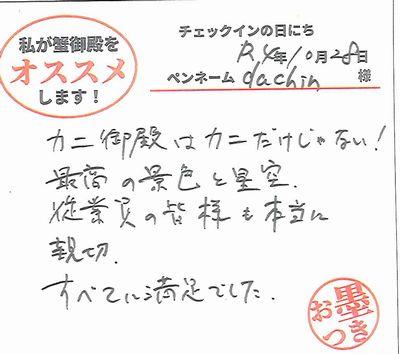 私が蟹御殿を
オススメ
します！
チェックインの日にち
R4年10月28日
ペンネーム dachin 様
カニ御殿はカニだけじゃない！
最高の景色と星空.
従業員の皆様も本当に
親切.
すべてに満足でした.
お墨つき